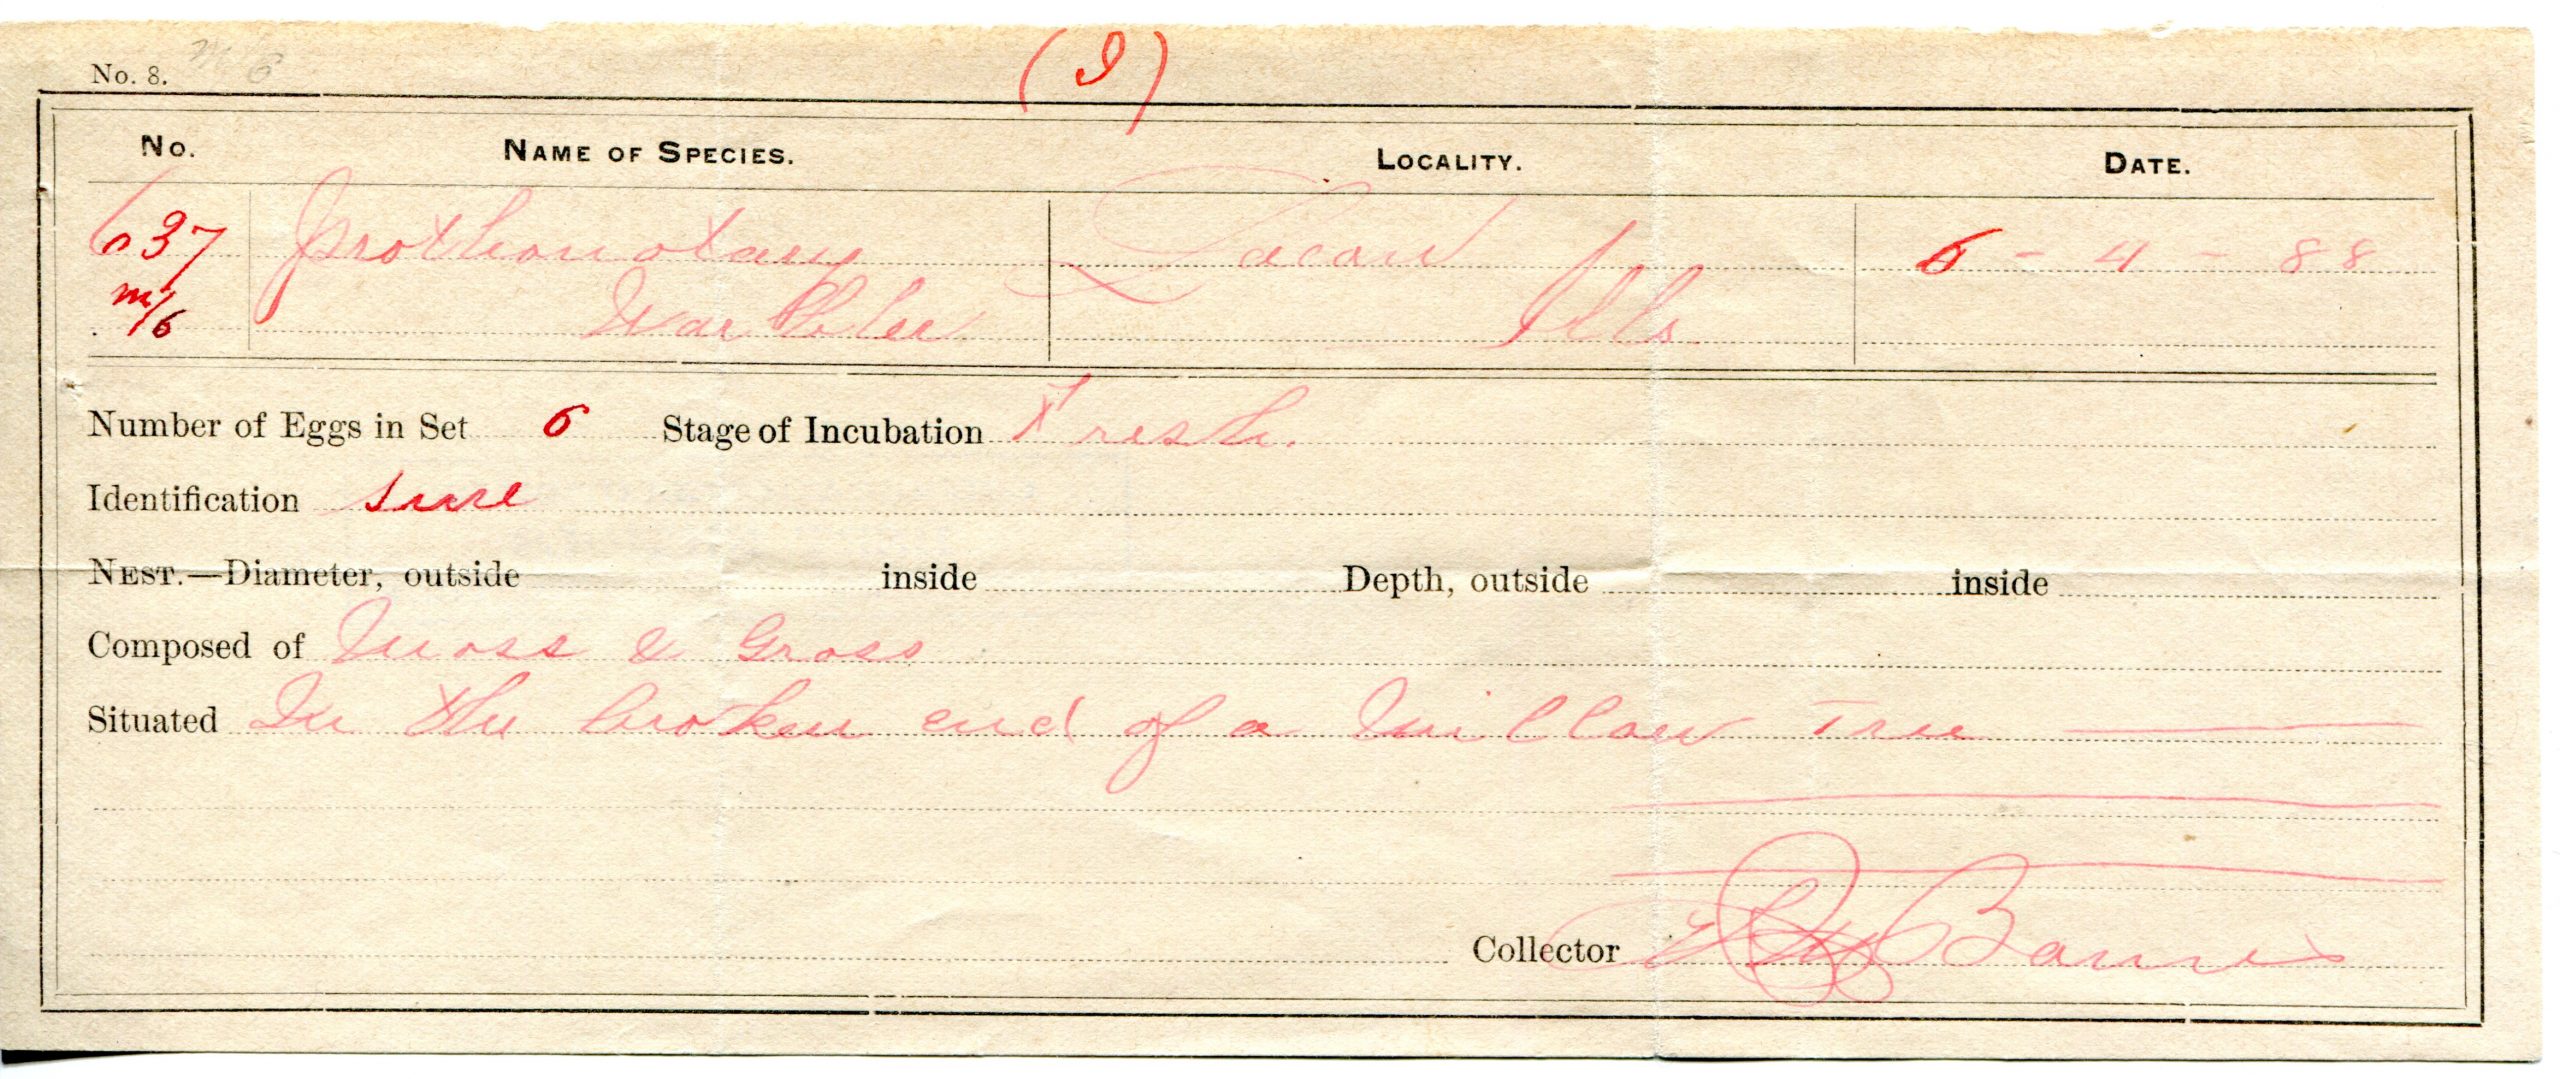 No. 8. m 6
(I)
No. NAME OF SPECIES. LOCALITY. DATE.
637 Prothonotary Lacon 6 - 4 - 88
m/6 Warbler Ills
Number of Eggs in Set 6 Stage of Incubation Fresh.
Identification Sure
NEST.—Diameter, outside inside Depth, outside inside
Composed of Moss & Grass
Situated In the broken end of a Willow Tree
Collector R M Barnes